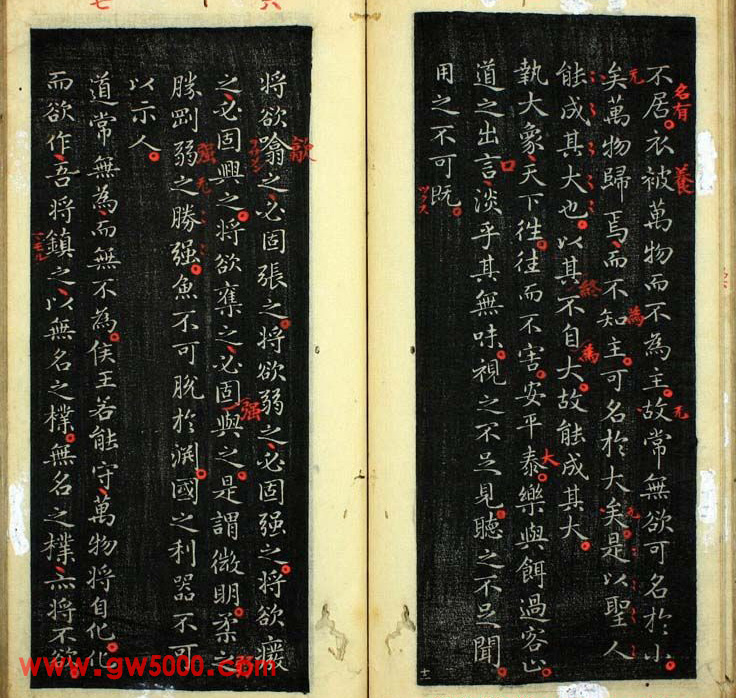 不居衣被萬物而不為主故常無欲可名於小
矣萬物歸焉而不知主可名於大矣是以聖人
能成其大也以其不自大故能成其大
執大象天下往往而不害安平泰樂與餌過客止
道之出言淡乎其無味視之不足見聽之不足聞
用之不可既
將欲噏之必固張之將欲弱之必固强之將欲廢
之必固興之將欲奪之必固與之是謂微明柔之
勝剛弱之勝强魚不可脫於淵國之利器不可
以示人
道常無為而無不為侯王若能守萬物將自化化
而欲作吾將鎮之以無名之樸無名之樸亦將不欲
名有
養
无
為
无
終
為
大
口
ツクス
歙
强
强
无
六
七
十一
www.gw5000.com